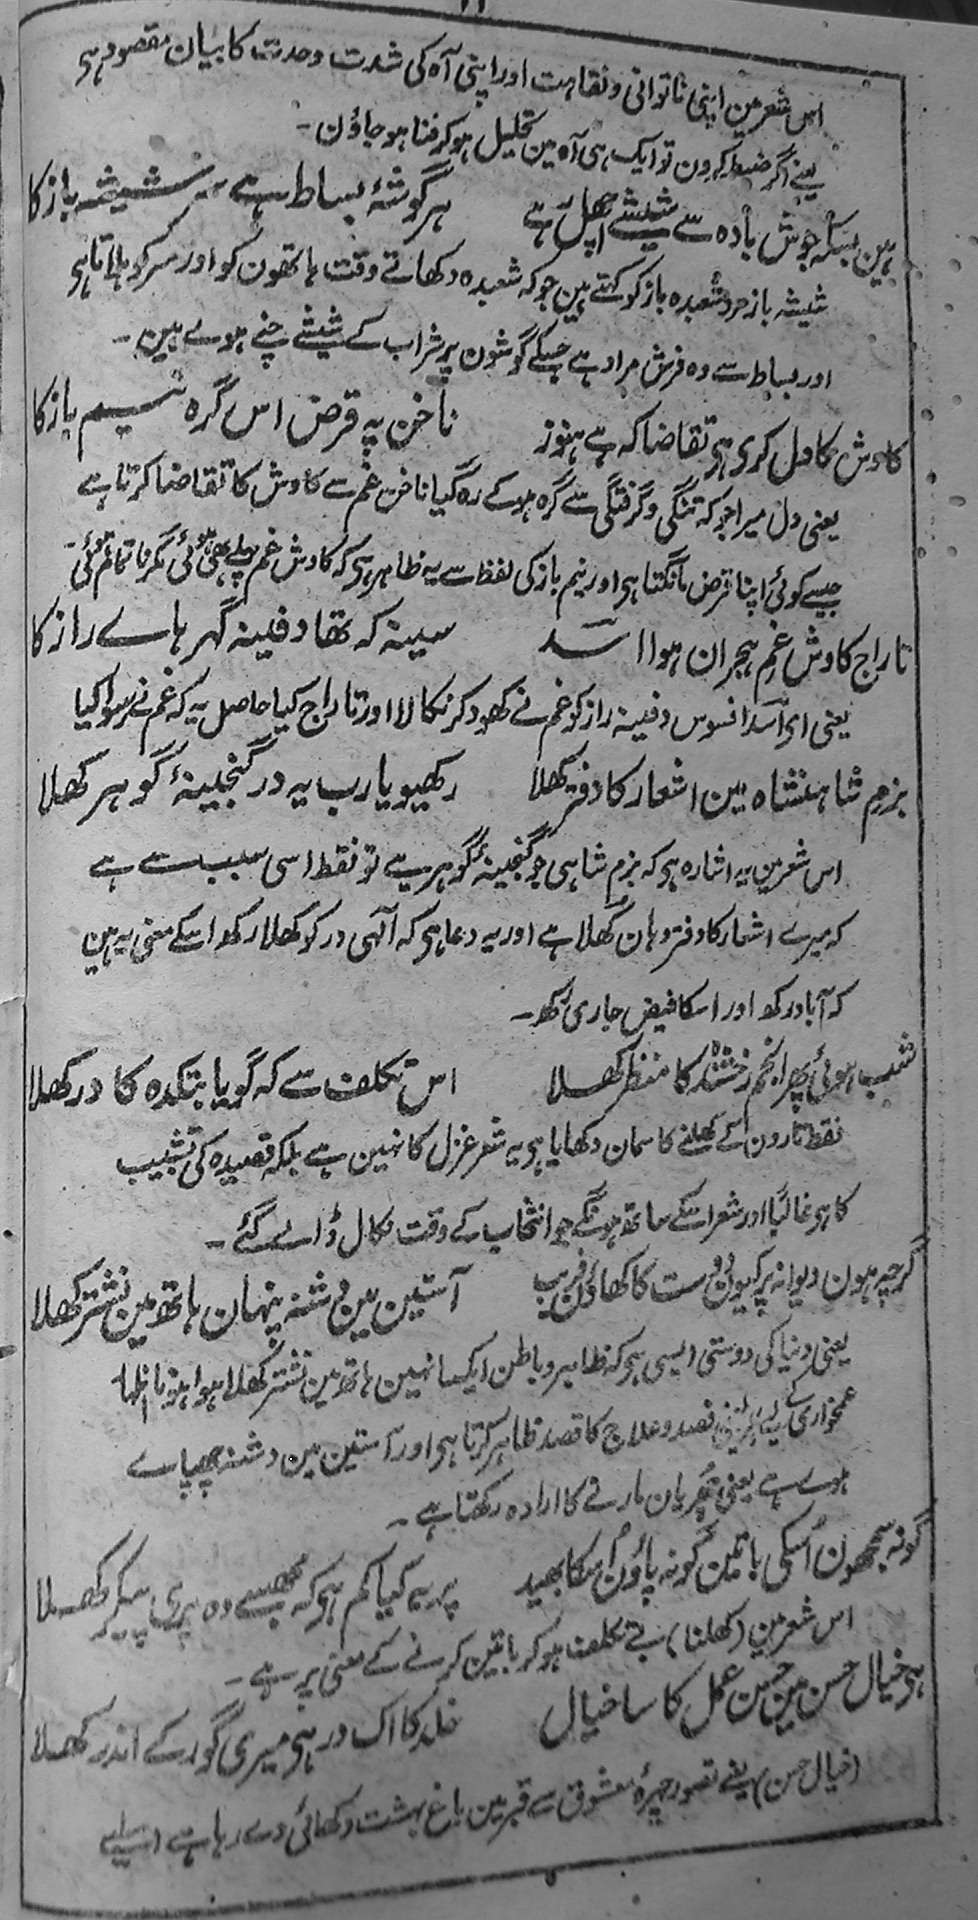 ۱۱
اس شعر مین اپنی ناتوانی و نقاہت اور اپنی آہ کی شدت وحدت کا بیان مقصود ہی
یعنے اگر ضبط کرون تو ایک ہی آہ مین تحلیل ہو کر فنا ہو جاؤن ۔
ہین بسکہ جوش بادہ سے شیشے اچھل رہے ہر گوشۂ بساط ہے سر شیشہ باز کا
شیشہ باز مرد شعبدہ باز کو کہتے ہین جو کہ شعبدہ دکھاتے وقت ہاتھون کو اور سر کو ہلاتا ہی
اور بساط سے وہ فرش مراد ہے جسکے گوشون پر شراب کے شیشے چنے ہوے ہین ۔
کاوش کا دل کری ہی تقاضا کہ ہے ہنوز ناخن پہ قرض اس گرہ نیم باز کا
یعنی دل میرا جو کہ تنگی و گرفتگی سے گرہ ہو کے رہ گیا ناخن غم سے کاوش کا تقاضا کرتا ہے
جیسے کوئی اپنا قرض مانگتا ہی اور نیم باز کی لفظ سے یہ ظاہر ہی کہ کاوش غم پہلے بھی ہوئی مگر ناتمام ہوئی ۔
تاراج کاوش غم ہجران ہوا اسد سینہ کہ تھا دفینہ گہر ہاے راز کا
یعنی ای اسد افسوس دفینہ راز کو غم نے کھود کر نکالا اور تاراج کیا حاصل یہ کہ غم نے رسوا کیا
بزم شاہنشاہ مین اشعار کا دفتر کھلا رکھیو یارب یہ در گنجینۂ گوہر کھلا
اس شعر مین یہ اشارہ ہی کہ بزم شاہی جو گنجینۂ گوہر ہے تو فقط اسی سبب سے ہے
کہ میرے اشعار کا دفتر وہان کھلا ہے اور یہ دعا ہی کہ آلہی در کو کھلا رکھو اسکے معنی یہ ہین
کہ آباد رکھ اور اسکا فیض جاری رکھ ۔
شب ہوئی پھر انجم رخشندہ کا منظر کھلا اس تکلف سے کہ گویا بتکدہ کا در کھلا
فقط تارون کے کھلنے کا سمان دکھایا ہی یہ شعر غزل کا نہین ہے بلکہ قصیدہ کی تشبیب
کا ہی غالباً اور شعر اسکے ساتھ ہونگے جو انتخاب کے وقت نکال ڈالے گئے ۔
گرچہ ہون دیوانہ پر کیون دوست کا کھاؤن فریب آستین مین دشنہ پنہان ہاتھ مین نشتر کھلا
یعنی دنیا کی دوستی ایسی ہی کہ ظاہر و باطن ایکسا نہین ہاتھ مین نشتر کھلا ہوا ہونا اظہار
غمخواری کے لیے فصد و علاج کا قصد ظاہر کرتا ہی اور آستین مین دشنہ چھپاے
ہوے ہے یعنی چھریان مارنے کا ارادہ رکھتا ہے ۔
گو نہ سمجھون اسکی باتین گو نہ پاؤن اسکا بھید پر یہ کیا کم ہی کہ مجھسے وہ پری پیکر کھلا
اس شعر مین (کھلنا) بے تکلف ہو کر باتین کرنے کے معنی پر ہے ۔
ہی خیال حسن مین حسن عمل کا سا خیال خلد کا اک در ہی میری گور کے اندر کھلا
(خیال حسن) یعنے تصور چہرۂ معشوق سے قبر مین باغ بہشت دکھائی دے رہا ہے اسلیے